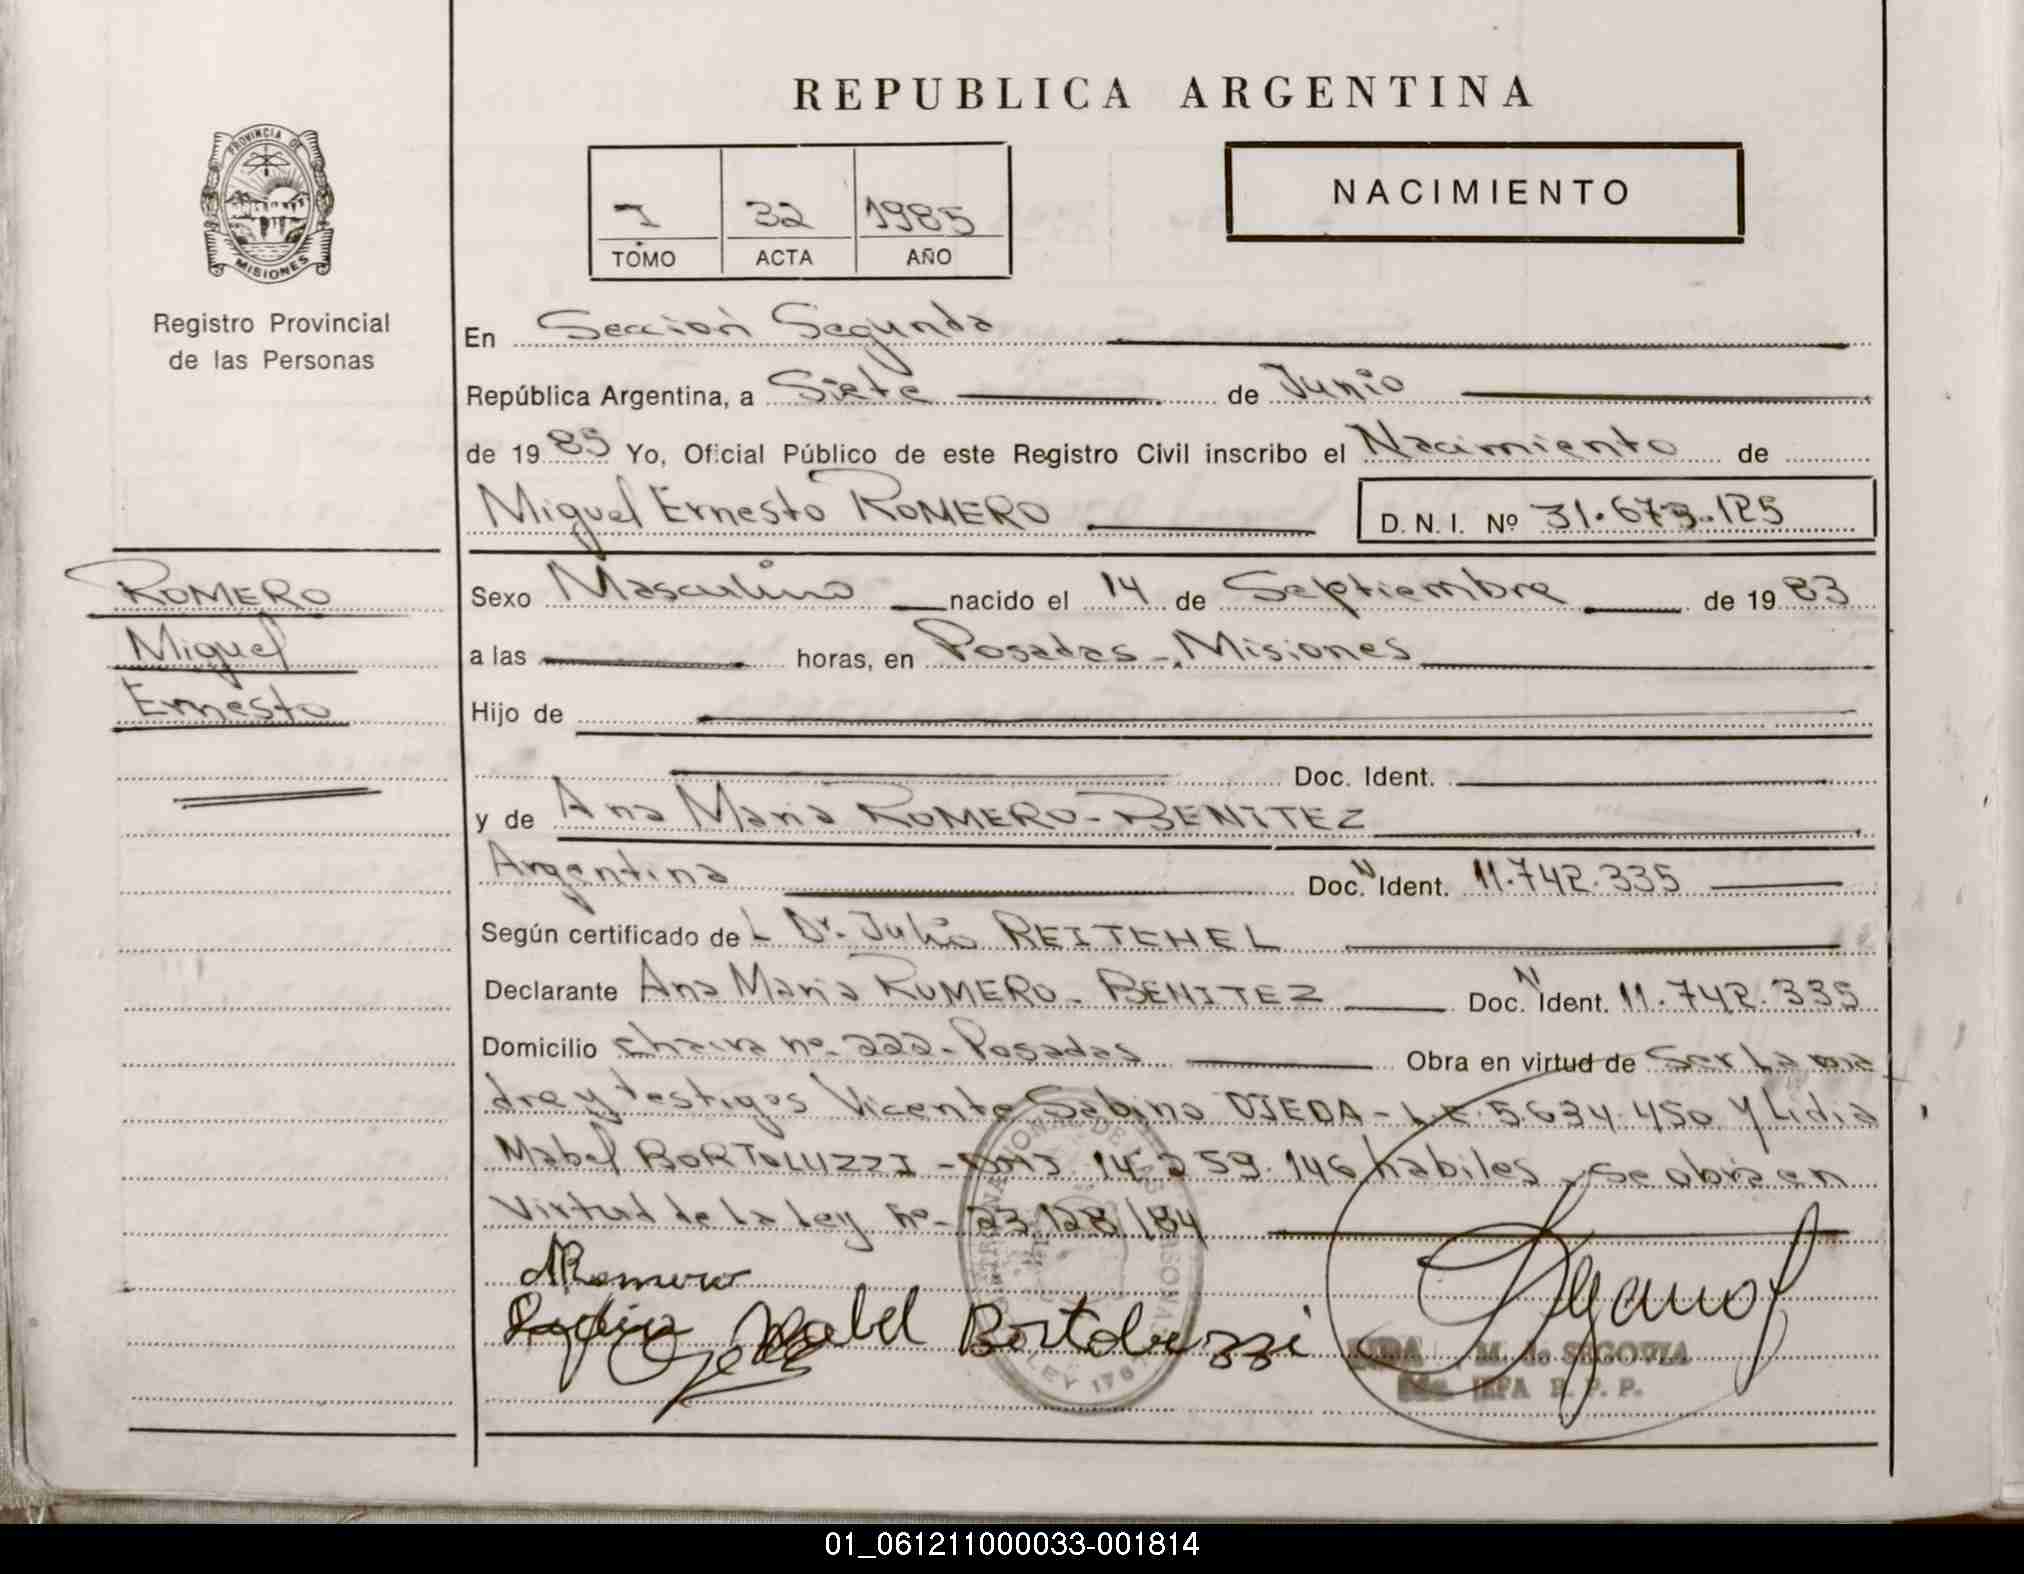 REPUBLICA ARGENTINA
PROVINCIA DE
MISIONES
Registro Provincial
de las Personas
I 32 1985
TOMO ACTA AÑO
NACIMIENTO
En Sección Segunda
República Argentina, a Siete de Junio
de 1985 Yo, Oficial Público de este Registro Civil inscribo el Nacimiento de
Miguel Ernesto ROMERO D. N. I. Nº 31.673.125
ROMERO
Miguel
Ernesto
Sexo Masculino nacido el 14 de Septiembre de 1983
a las horas, en Posadas - Misiones
Hijo de
Doc. Ident.
y de Ana Maria ROMERO - BENITEZ
Argentina Doc. N Ident. 11.742.335
Según certificado de L Dr. Julio REITEHEL
Declarante Ana Maria ROMERO - BENITEZ Doc. N Ident. 11.742.335
Domicilio chacra nº - 222 - Posadas Obra en virtud de Ser La ma
dre y testigos Vicente Sabino OJEDA - L.E. 5.634.450 y Lidia
Mabel BORTOLUZZI - DNI 14.259.146 habiles, se obra en
Virtud de la Ley nº - 23.128/84
ARomero
Mabel Bortoluzzi
M. de SEGOVIA
JEFA R. P. P.
LEY 176
01_061211000033-001814